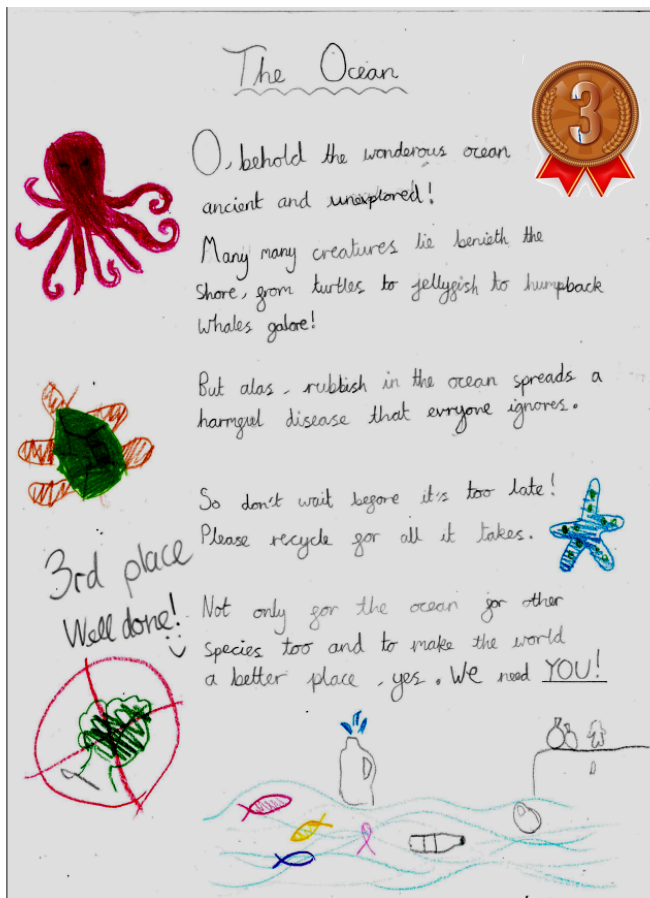 The Ocean
3
O, behold the wonderous ocean
ancient and unexplored!
Many many creatures lie benieth the
shore, from turtles to jellyfish to humpback
whales galore!
But alas, rubbish in the ocean spreads a
harmful disease that evryone ignores.
So don't wait before it's too late!
Please recycle for all it takes.
3rd place
Well done!
Not only for the ocean for other
species too and to make the world
a better place, yes. We need YOU!